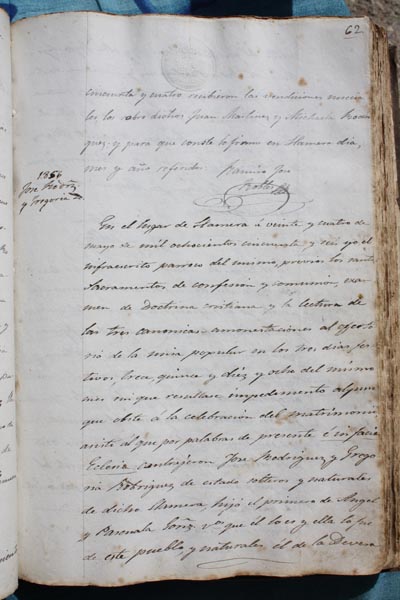 62
cincuenta y cuatro recibieron las bendiciones nuncia
les los sobre dichos Juan Martinez y Michaela Rodri
guez y para que conste lo firmo en Llamera dia,
mes y año referido. Ramiro José
Robles
1856
José Rodríz
y Gregoria
En el lugar de Llamera á veinte y cuatro de
mayo de mil ochocientos cincuenta y seis yo el
infrascrito parroco del mismo, previos los santos
Sacramentos de confesión y comunion, exa
men de Doctrina cristiana y la lectura de
las tres canonicas amonestaciones al oferto
rio de la misa popular en los tres dias fes
tivos, trece, quince y diez y ocho del mismo
mes sin que resultase impedimento alguno
que obste á la celebracion del matrimonio
asisti al que por palabras de presente é in facie
Eclesia contrajeron José Rodriguez y Grego
ria Rodriguez de estado solteros y naturales
de dicho Llamera, hijo el primero de Angel
y Pascuala que él lo es y ella lo fue
de este pueblo y naturales él de la Devesa